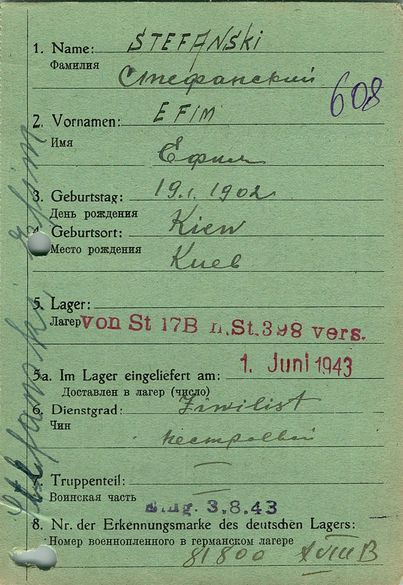 1. Name: STEFANSKI
Фамилия
Стефанский
608
2. Vornamen: EFIM
Имя
Ефим
3. Geburtstag: 19.1.1902
День рождения
4. Geburtsort: Kiew
Место рождения
Киев
5. Lager:
Лагерь von St 17B n.St.398 vers.
1. Juni 1943
5a. Im Lager eingeliefert am:
Доставлен в лагерь (число)
6. Dienstgrad: Ziwilist
Чин
нестроевой
7. Truppenteil: —
Воинская часть
Eing. 3.8.43
8. Nr. der Erkennungsmarke des deutschen Lagers:
Номер военнопленного в германском лагере
81800 XVII B
Stefanski Efim